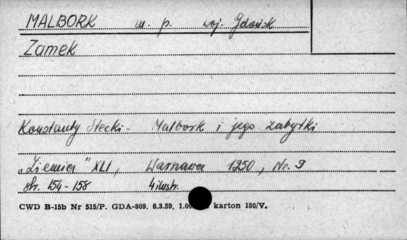 MALBORK m. p. woj. Gdańsk
Zamek
Konstanty Stecki - Malbork i jego zabytki
"Ziemia" XLI, Warszawa 1950, Nr. 9
str. 154-158 4 ilustr.
CWD B-15b Nr 515/P. GDA-809. 6.3.59, 1.00 karton 180/V.